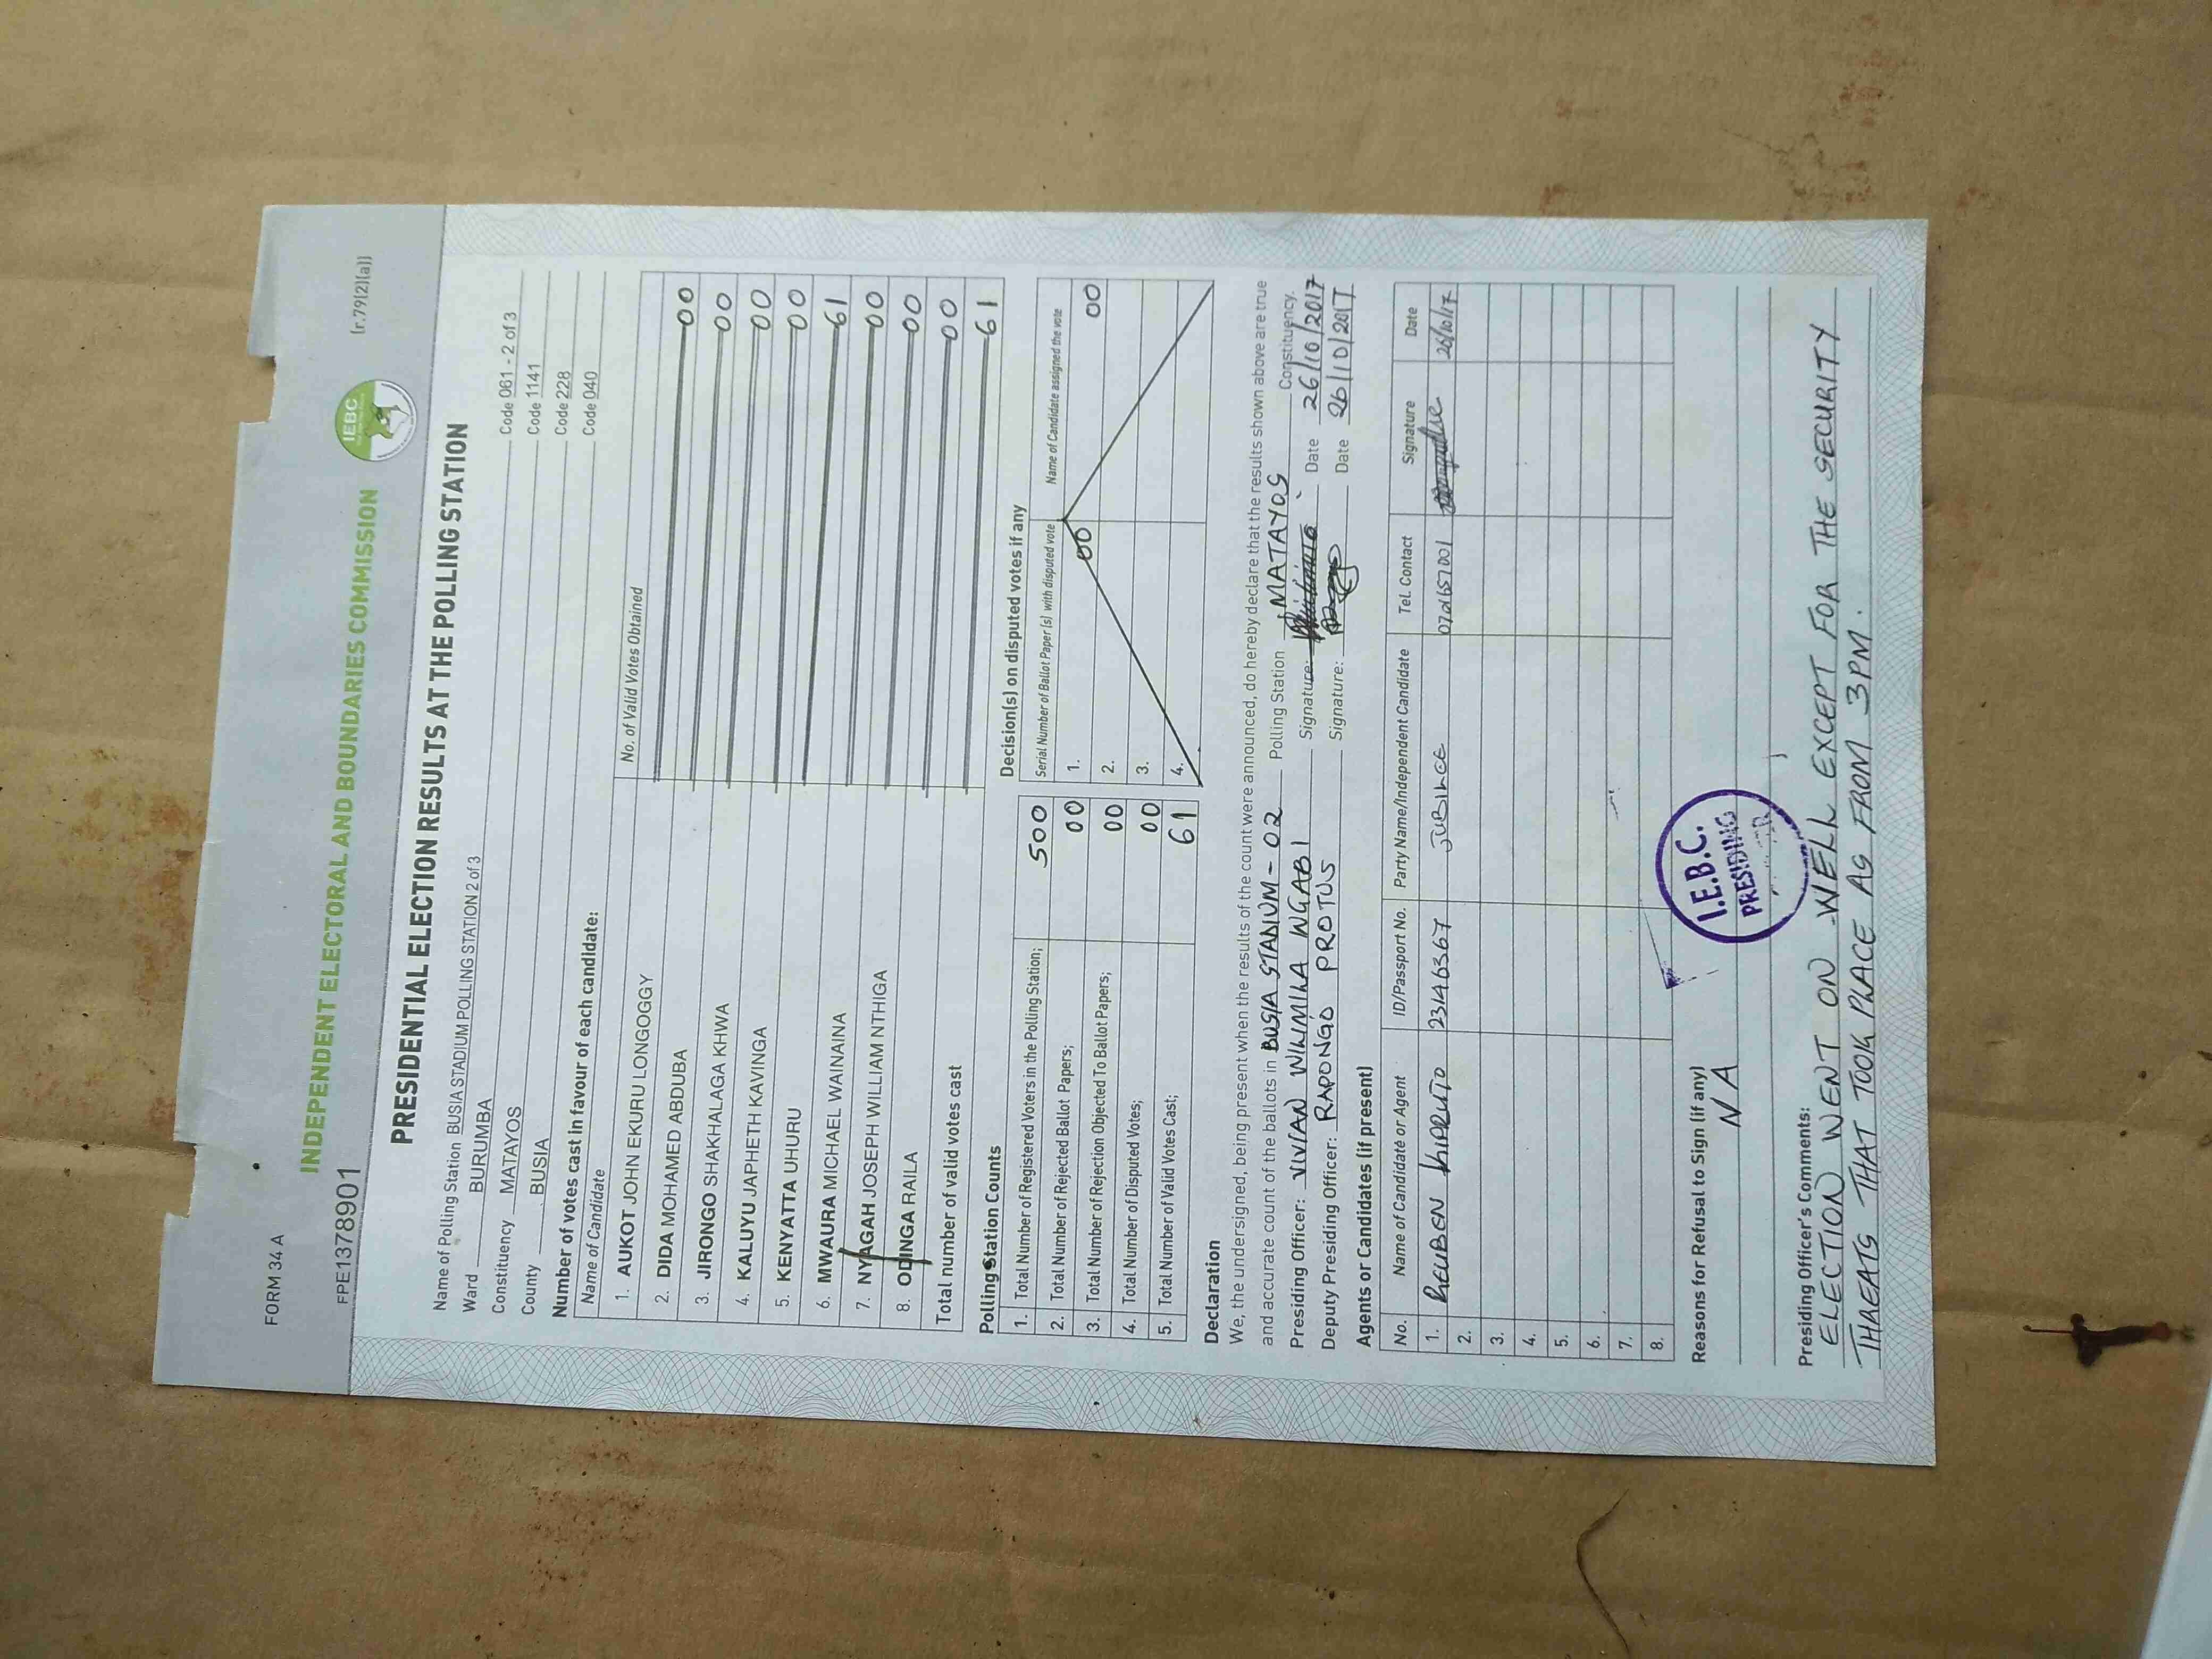 FORM 34 A
(r.79(2)(a))
INDEPENDENT ELECTORAL AND BOUNDARIES COMMISSION
IEBC
FPE1378901
PRESIDENTIAL ELECTION RESULTS AT THE POLLING STATION
Name of Polling Station BUSIA STADIUM POLLING STATION 2 of 3 Code 061 - 2 of 3
Ward BURUMBA Code 1141
Constituency MATAYOS Code 228
County BUSIA Code 040
Number of votes cast in favour of each candidate:
Name of Candidate No. of Valid Votes Obtained
1. AUKOT JOHN EKURU LONGOGGY 00
2. DIDA MOHAMED ABDUBA 00
3. JIRONGO SHAKHALAGA KHWA 00
4. KALUYU JAPHETH KAVINGA 00
5. KENYATTA UHURU 61
6. MWAURA MICHAEL WAINAINA 00
7. NYAGAH JOSEPH WILLIAM NTHIGA 00
8. ODINGA RAILA 00
Total number of valid votes cast 61
Polling Station Counts
1. Total Number of Registered Voters in the Polling Station; 500
2. Total Number of Rejected Ballot Papers; 00
3. Total Number of Rejection Objected To Ballot Papers; 00
4. Total Number of Disputed Votes; 00
5. Total Number of Valid Votes Cast; 61
Decision(s) on disputed votes if any
Serial Number of Ballot Paper (s) with disputed vote Name of Candidate assigned the vote
1. 00 00
2.
3.
4.
Declaration
We, the undersigned, being present when the results of the count were announced, do hereby declare that the results shown above are true
and accurate count of the ballots in BUSIA STADIUM - 02 Polling Station MATAYOS Constituency.
Presiding Officer: VIVIAN WILIMINA INGABI Signature: Date 26/10/2017
Deputy Presiding Officer: RAPONGO PROTUS Signature: Date 26/10/2017
Agents or Candidates (if present)
No. Name of Candidate or Agent ID/Passport No. Party Name/Independent Candidate Tel. Contact Signature Date
1. REUBEN KIPRUTO 23146367 JUBILEE 26/10/17
2.
3.
4.
5.
6.
7.
8.
Reasons for Refusal to Sign (if any)
N A
I.E.B.C.
PRESIDING
Presiding Officer's Comments:
ELECTION WENT ON WELL EXCEPT FOR THE SECURITY
THREATS THAT TOOK PLACE AS FROM 3PM.